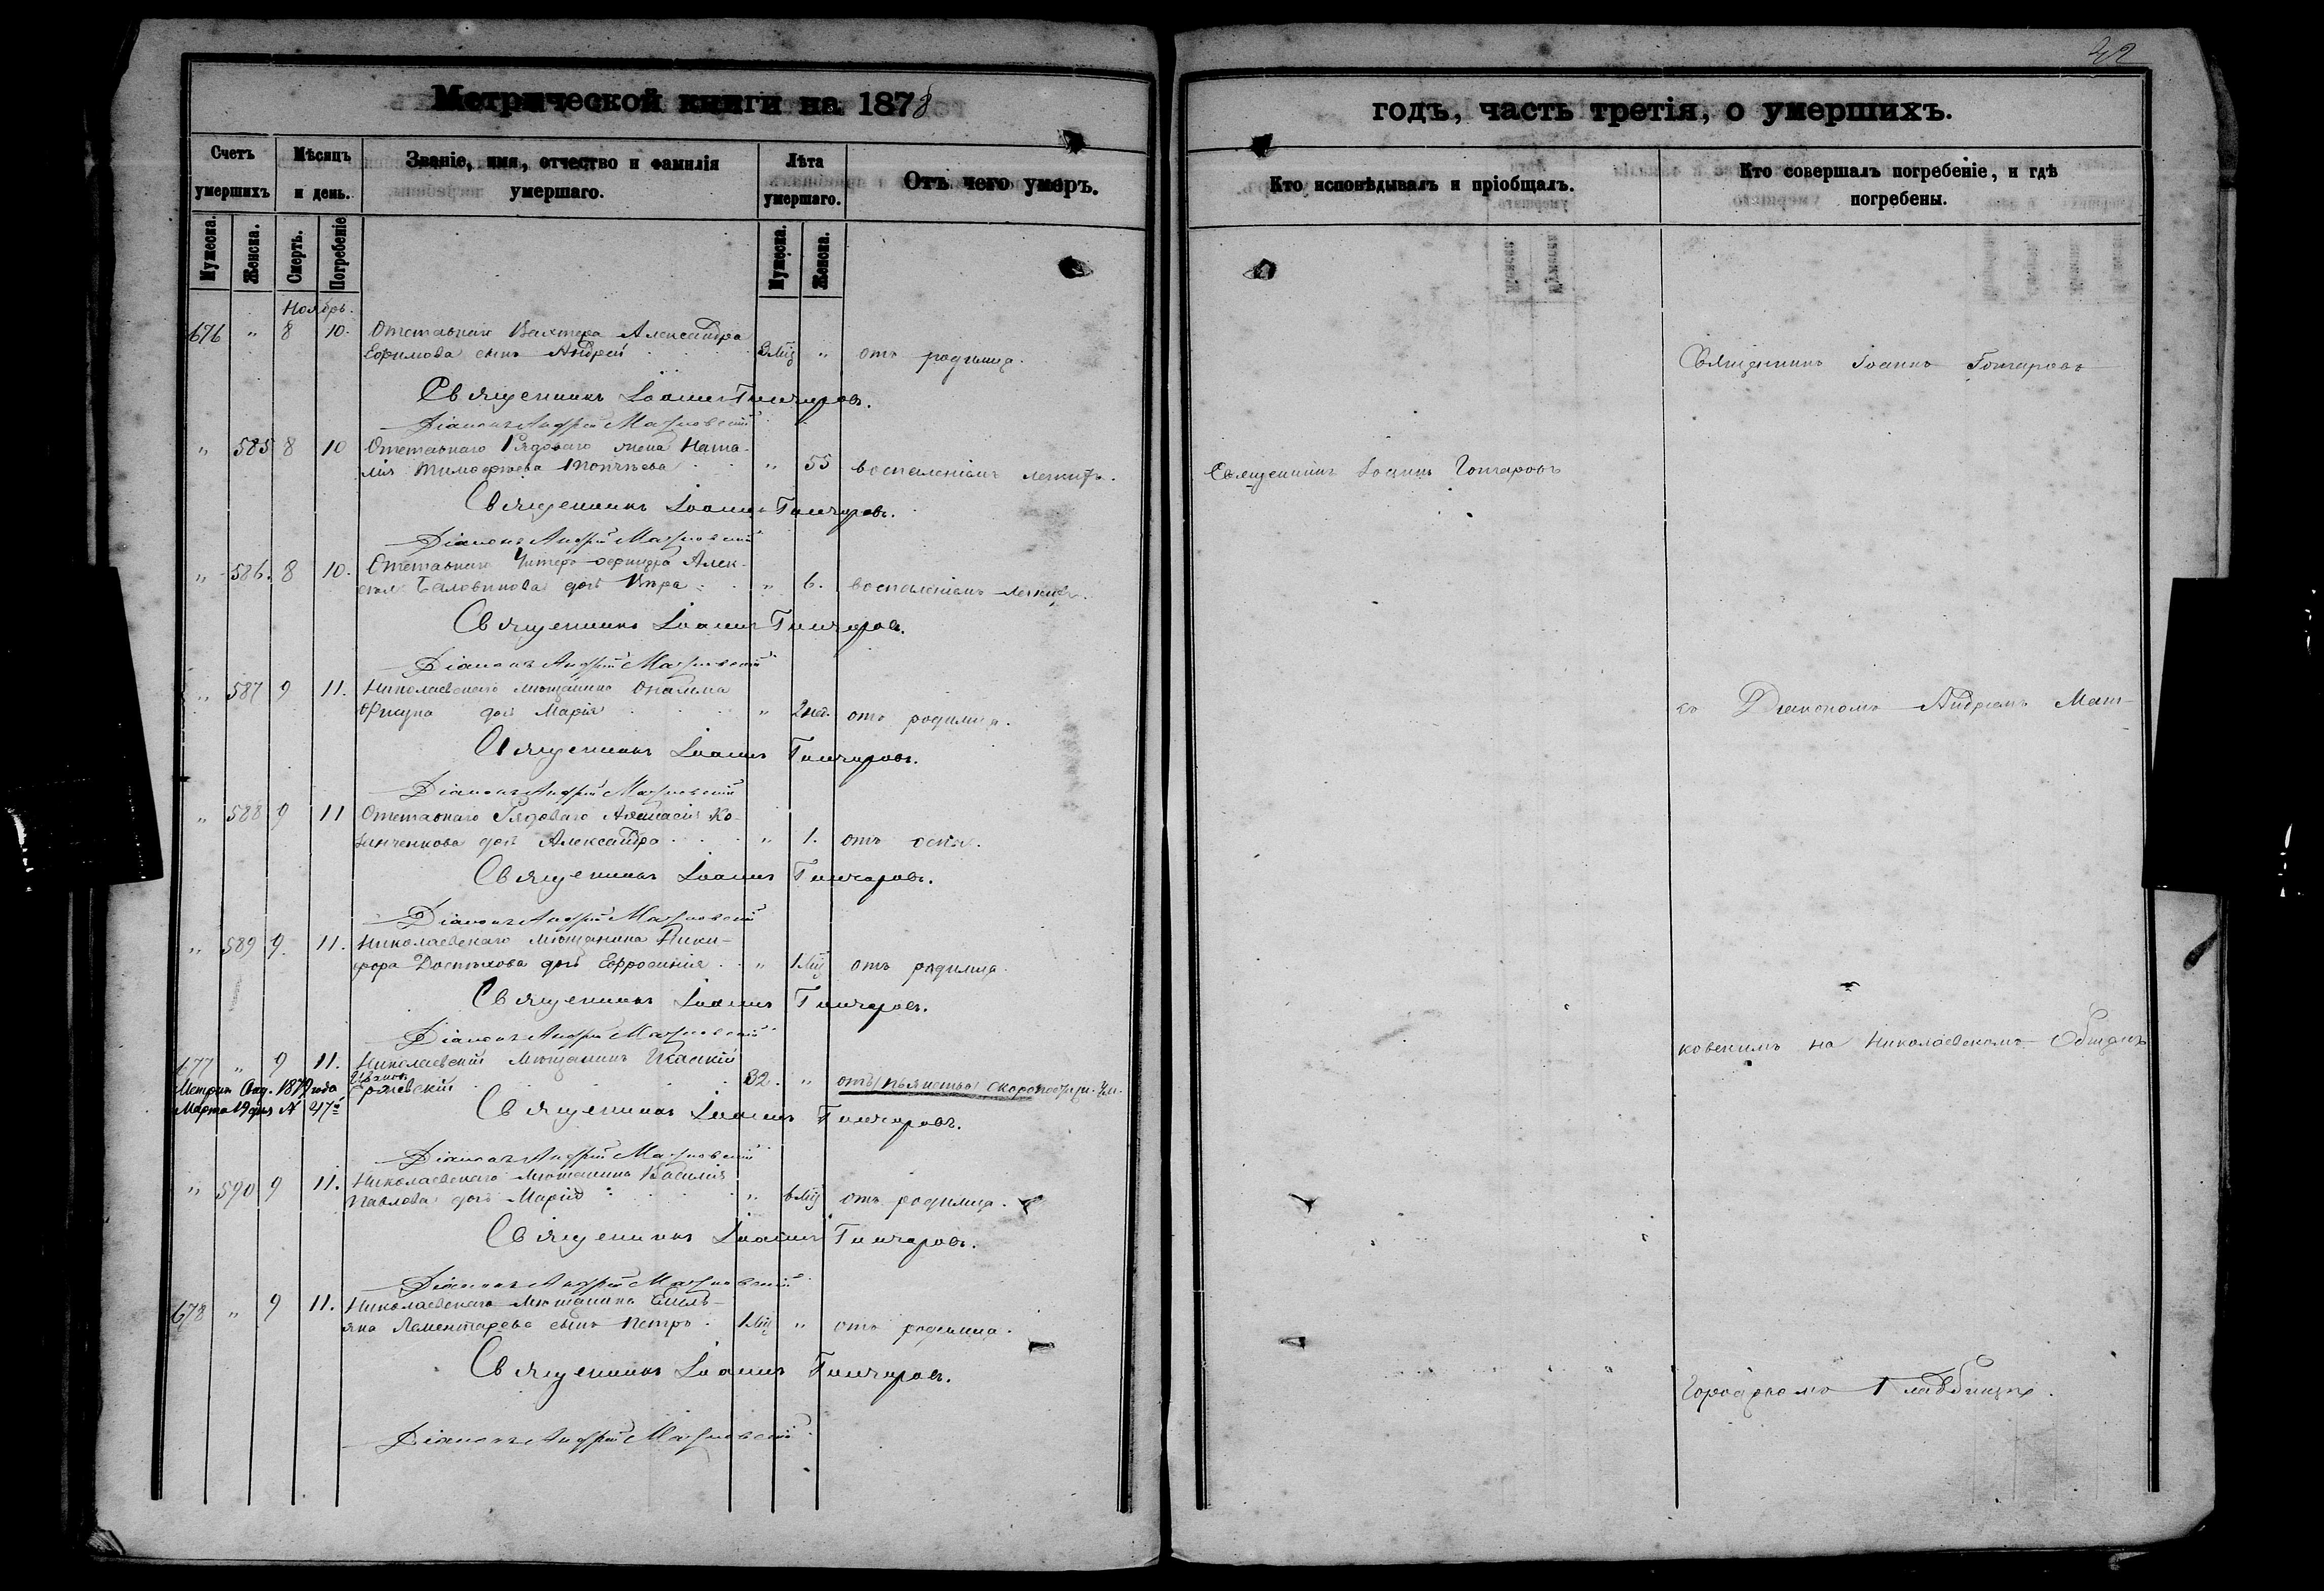 Метрической книги на 1878
Счетъ умершихъ
Мѣсяцъ и день.
Званіе, имя, отчество и фамилія умершаго.
Лѣта умершаго.
Отъ чего умеръ.
Мужеска.
Женска.
Смерть.
Погребеніе
Мужеска.
Женска.
Ноябрь.
676 " 8 10. Отставнаго Вахтера Александра
Ефимова сынъ Андрей 3 мѣ " отъ родимца.
Священникъ Іоаннъ Гончаровъ.
Діаконъ Андрей
" 585 8 10 Отставнаго Рядоваго жена Ната-
лія Тимофѣева " 55 воспаленіемъ легкихъ.
Священникъ Іоаннъ Гончаровъ.
Діаконъ Андрей
" 586. 8 10. Отставнаго Унтеръ-офицера Алек-
дочь Вѣра " 6. воспаленіемъ легкихъ.
Священникъ Іоаннъ Гончаровъ.
Діаконъ Андрей
" 587 9 11. Николаевскаго мѣщанина
дочь Марія " 2 нед. отъ родимца.
Священникъ Іоаннъ Гончаровъ.
Діаконъ Андрей
" 588 9 11 Отставнаго Рядоваго Афанасія Ко-
зинченкова дочь Александра " 1. отъ оспы.
Священникъ Іоаннъ Гончаровъ.
Діаконъ Андрей
" 589 9. 11. Николаевскаго мѣщанина Ники-
фора дочь Евфросинія " 1 мѣ отъ родимца.
Священникъ Іоаннъ Гончаровъ.
Діаконъ Андрей
677 " 9 11. Николаевскій мѣщанинъ
Иванъ
32. " отъ пьянства
Метрик. 1879 года
Марта 19 дня № 47
Священникъ Іоаннъ Гончаровъ.
Діаконъ Андрей
" 590 9 11. Николаевскаго мѣщанина Василія
Павлова дочь Марія " 6 мѣ отъ родимца.
Священникъ Іоаннъ Гончаровъ.
Діаконъ Андрей
678 " 9 11. Николаевскаго мѣщанина Емель-
яна Лементарева сынъ Петръ 1 мѣ " отъ родимца.
Священникъ Іоаннъ Гончаровъ.
Діаконъ Андрей
42
годъ, часть третія, о умершихъ.
Кто исповѣдывалъ и пріобщалъ.
Кто совершалъ погребеніе, и гдѣ погребены.
Священникъ Іоаннъ Гончаровъ
Священникъ Іоаннъ Гончаровъ
съ Діакономъ Андреемъ
ковскимъ на Николаевскомъ Общемъ
Городскомъ Кладбищѣ.